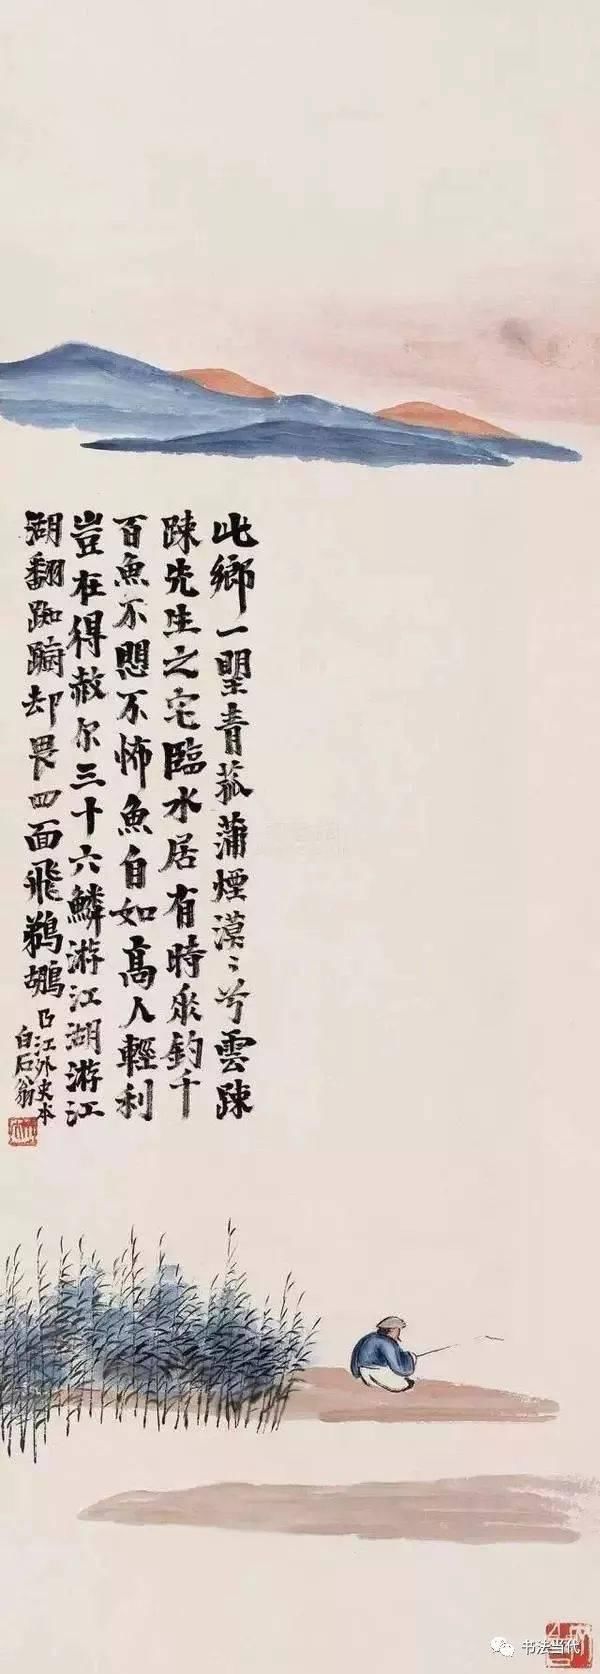 此鄉一朢青菰蒲煙漠〻兮雲踈
踈先生之宅臨水居有時垂釣千
百魚不愳不怖魚自如高人輕利
豈在得赦尔三十六鱗游江湖游江
湖翻踟躕却畏四面飛鵜鶘
曲江外史本
白石翁
书法当代